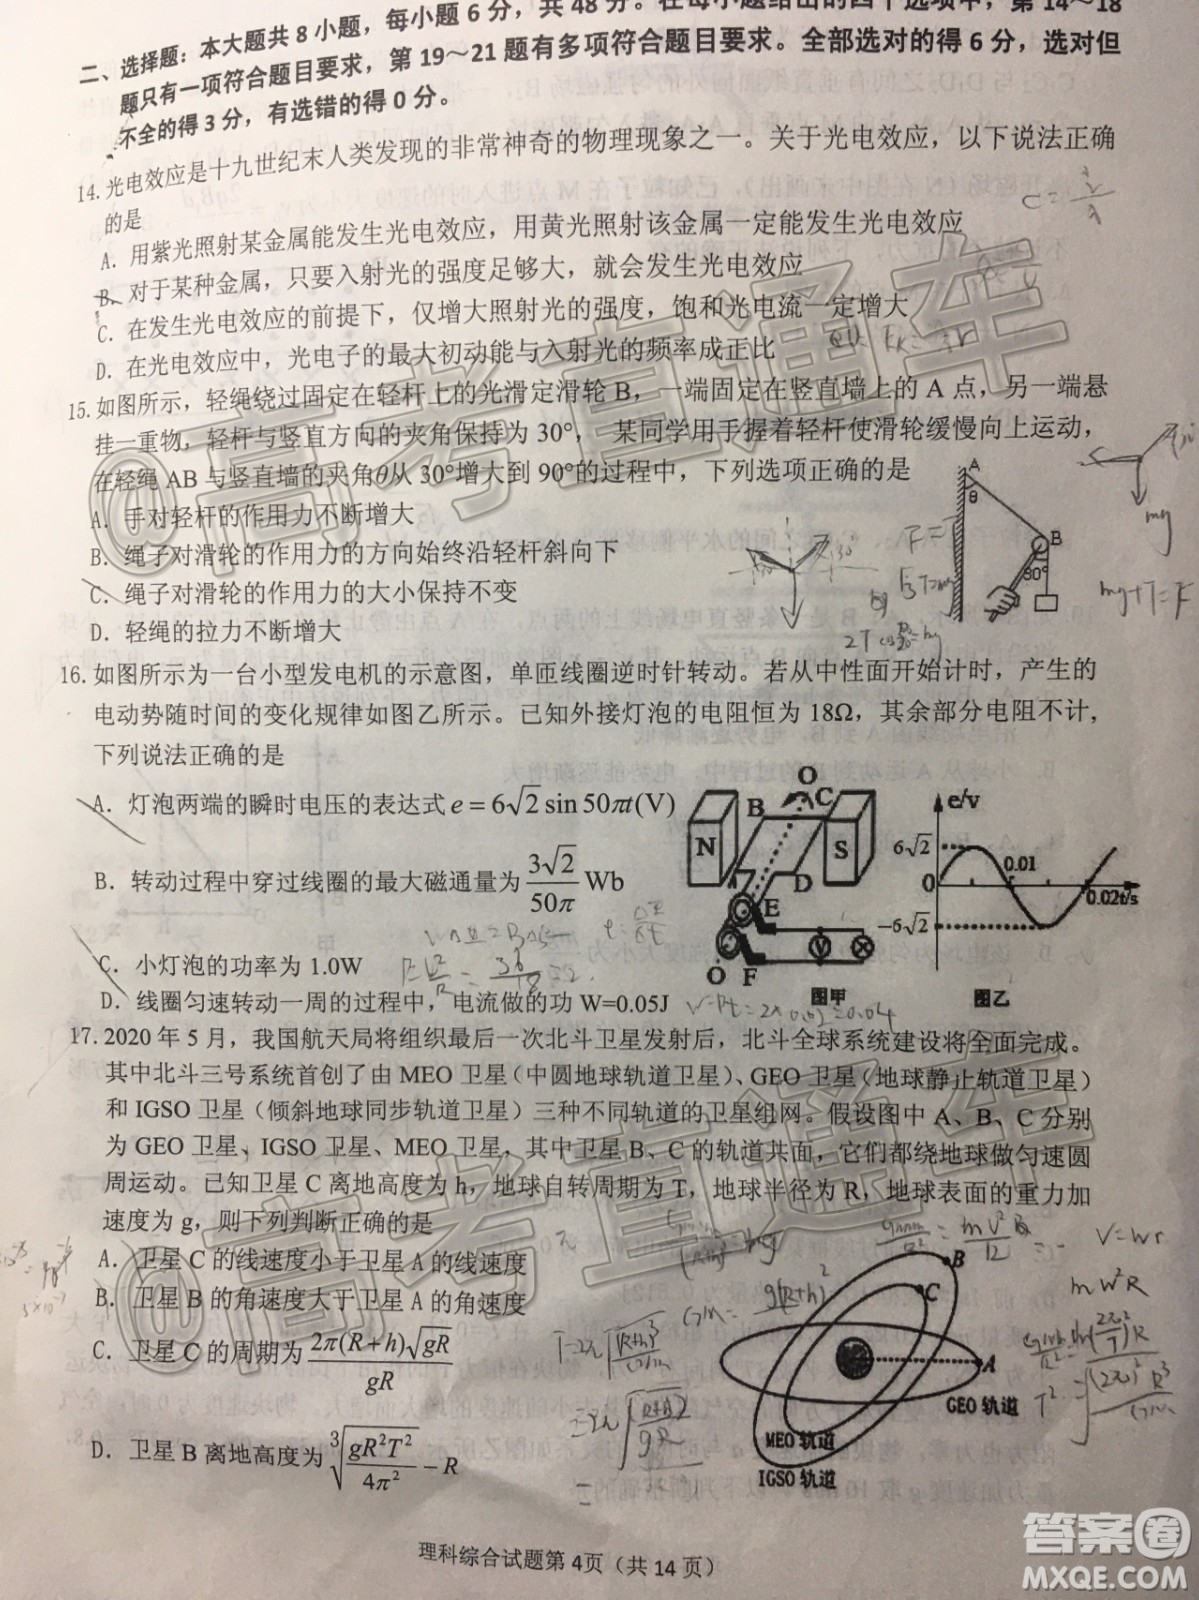 二、选择题：本大题共 8 小题，每小题 6 分，共 48 分。在每小题给出的四个选项中，第 14～18
题只有一项符合题目要求，第 19～21 题有多项符合题目要求。全部选对的得 6 分，选对但
不全的得 3 分，有选错的得 0 分。
14. 光电效应是十九世纪末人类发现的非常神奇的物理现象之一。关于光电效应，以下说法正确
的是
A．用紫光照射某金属能发生光电效应，用黄光照射该金属一定能发生光电效应
B．对于某种金属，只要入射光的强度足够大，就会发生光电效应
C．在发生光电效应的前提下，仅增大照射光的强度，饱和光电流一定增大
D．在光电效应中，光电子的最大初动能与入射光的频率成正比
15. 如图所示，轻绳绕过固定在轻杆上的光滑定滑轮 B，一端固定在竖直墙上的 A 点，另一端悬
挂一重物，轻杆与竖直方向的夹角保持为 30°， 某同学用手握着轻杆使滑轮缓慢向上运动，
在轻绳 AB 与竖直墙的夹角θ从 30°增大到 90°的过程中，下列选项正确的是
A．手对轻杆的作用力不断增大
B．绳子对滑轮的作用力的方向始终沿轻杆斜向下
C．绳子对滑轮的作用力的大小保持不变
D．轻绳的拉力不断增大
A
θ
B
30°
16. 如图所示为一台小型发电机的示意图，单匝线圈逆时针转动。若从中性面开始计时，产生的
电动势随时间的变化规律如图乙所示。已知外接灯泡的电阻恒为 18Ω，其余部分电阻不计，
下列说法正确的是
A．灯泡两端的瞬时电压的表达式 e = 6√2 sin 50πt(V)
B．转动过程中穿过线圈的最大磁通量为 3√2/50π Wb
C．小灯泡的功率为 1.0W
D．线圈匀速转动一周的过程中，电流做的功 W=0.05J
O
B C
N
S
A D
E
O F
V
图甲
e/v
6√2
0
0.01
0.02 t/s
-6√2
图乙
17. 2020 年 5 月，我国航天局将组织最后一次北斗卫星发射后，北斗全球系统建设将全面完成。
其中北斗三号系统首创了由 MEO 卫星（中圆地球轨道卫星）、GEO 卫星（地球静止轨道卫星）
和 IGSO 卫星（倾斜地球同步轨道卫星）三种不同轨道的卫星组网。假设图中 A、B、C 分别
为 GEO 卫星、IGSO 卫星、MEO 卫星，其中卫星 B、C 的轨道共面，它们都绕地球做匀速圆
周运动。已知卫星 C 离地高度为 h，地球自转周期为 T，地球半径为 R，地球表面的重力加
速度为 g，则下列判断正确的是
A．卫星 C 的线速度小于卫星 A 的线速度
B．卫星 B 的角速度大于卫星 A 的角速度
C．卫星 C 的周期为 2π(R+h)√gR/gR
D．卫星 B 离地高度为 ∛(gR²T²/4π²) − R
B
C
A
GEO 轨道
MEO 轨道
IGSO 轨道
理科综合试题第 4页（共 14 页）
@高考直通车
@高考直通车
答案圈
MXQE.COM